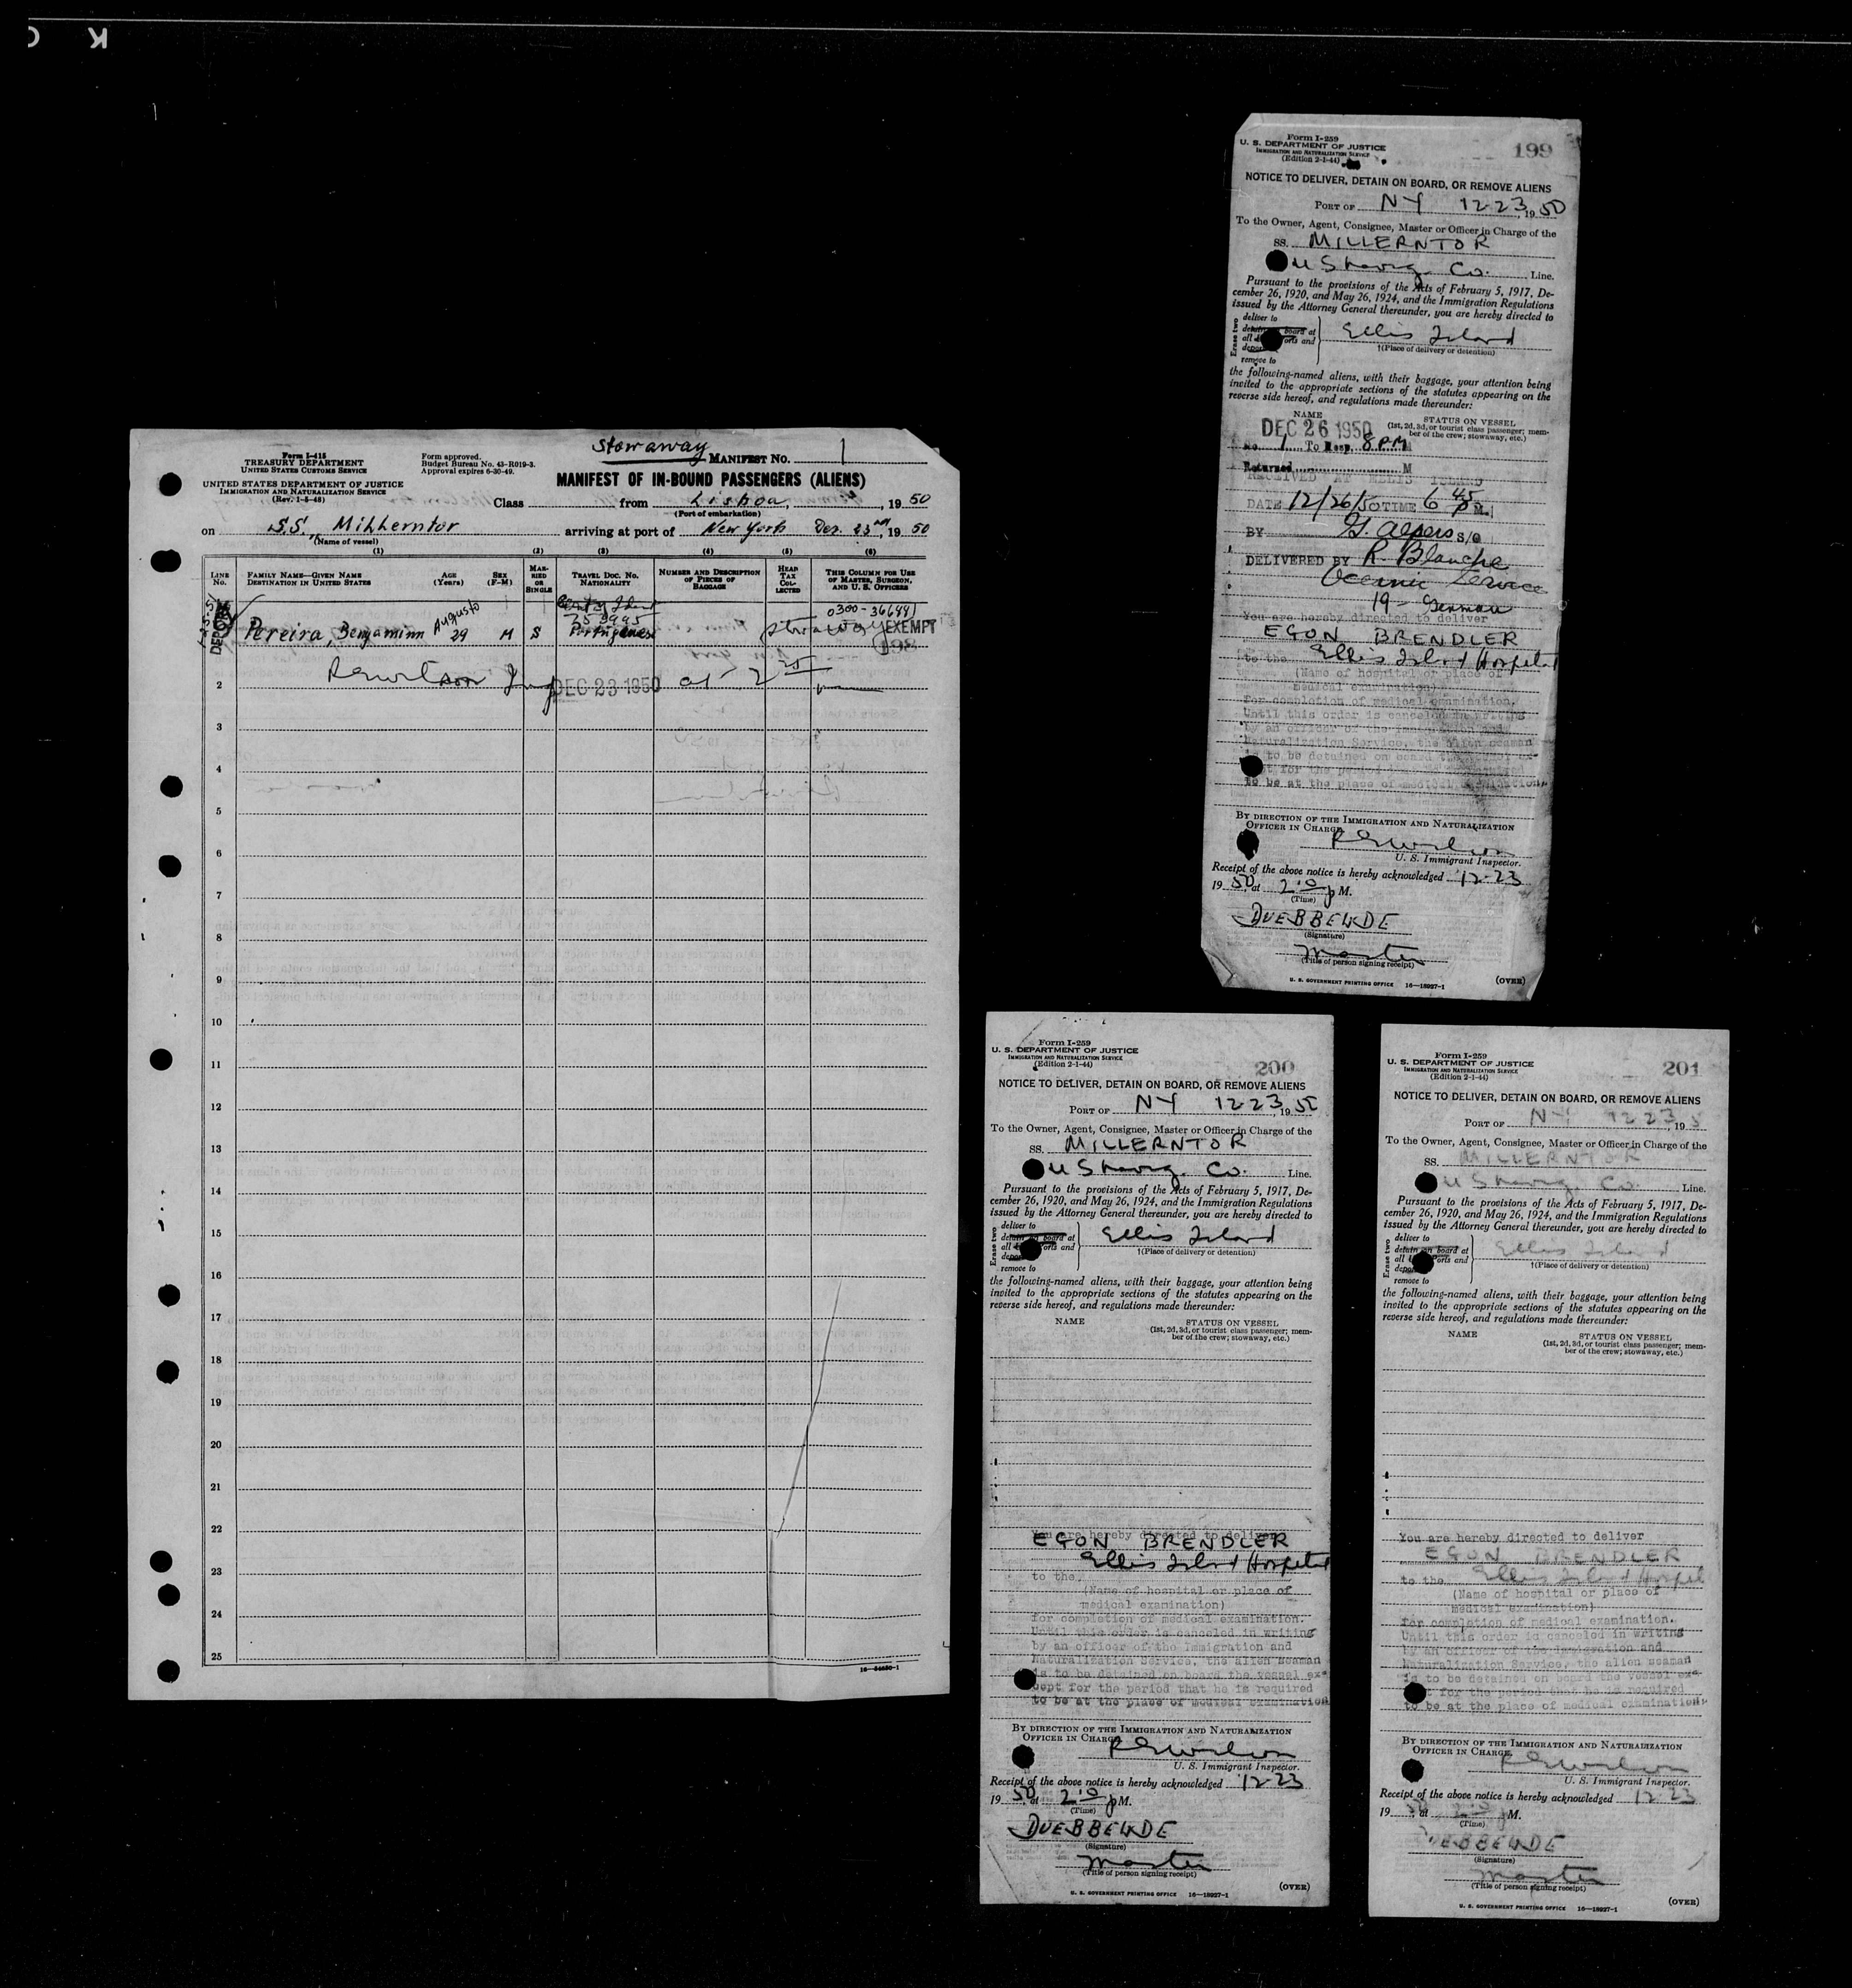 K
Stowaway
Form I-415
TREASURY DEPARTMENT
UNITED STATES CUSTOMS SERVICE
UNITED STATES DEPARTMENT OF JUSTICE
IMMIGRATION AND NATURALIZATION SERVICE
(Rev. 1-5-48)
Form approved.
Budget Bureau No. 43-R019-3.
Approval expires 6-30-49.
MANIFEST NO. 1
MANIFEST OF IN-BOUND PASSENGERS (ALIENS)
Class from Lisboa, , 19 50
(Port of embarkation)
on S.S. Millerntor arriving at port of New York Dez. 23rd, 19 50
(Name of vessel)
(1) (2) (3) (4) (5) (6)
LINE No.
FAMILY NAME—GIVEN NAME
DESTINATION IN UNITED STATES
AGE (Years)
SEX (F-M)
MARRIED OR SINGLE
TRAVEL DOC. NO. NATIONALITY
NUMBER AND DESCRIPTION OF PIECES OF BAGGAGE
HEAD TAX COLLECTED
THIS COLUMN FOR USE OF MASTER, SURGEON, AND U. S. OFFICERS
0300-36644
Pereira, Benjaminn Augusto 29 M S Portuguese Stowaway EXEMPT
198
2 DEC 23 1950 at 2
3
4
5
6
7
8
9
10
11
12
13
14
15
16
17
18
19
20
21
22
23
24
25
Form I-259
U. S. DEPARTMENT OF JUSTICE
IMMIGRATION AND NATURALIZATION SERVICE
(Edition 2-1-44)
199
NOTICE TO DELIVER, DETAIN ON BOARD, OR REMOVE ALIENS
PORT OF NY 12-23, 19 50
To the Owner, Agent, Consignee, Master or Officer in Charge of the
SS. MILLERNTOR
Co. Line.
Pursuant to the provisions of the Acts of February 5, 1917, De-
cember 26, 1920, and May 26, 1924, and the Immigration Regulations
issued by the Attorney General thereunder, you are hereby directed to
Erase two
deliver to
detain on board at
all ports and
remove to
Ellis Island
†(Place of delivery or detention)
the following-named aliens, with their baggage, your attention being
invited to the appropriate sections of the statutes appearing on the
reverse side hereof, and regulations made thereunder:
NAME
STATUS ON VESSEL
(1st, 2d, 3d, or tourist class passenger; mem-
ber of the crew; stowaway, etc.)
DEC 26 1950
No. 1 To Hosp. 8 PM
Returned M
RECEIVED AT ELLIS ISLAND
DATE 12/26/50 TIME 6 45 PM
BY G. Alpers S/O
DELIVERED BY R. Blanche
Oceanic Service
19- German
You are hereby directed to deliver
EGON BRENDLER
to the Ellis Island Hospital
(Name of hospital or place of
medical examination)
for completion of medical examination.
Until this order is canceled in writing
by an officer of the Immigration and
Naturalization Service, the alien seaman
is to be detained on board the vessel ex-
for the period
to be at the place of medical examination.
BY DIRECTION OF THE IMMIGRATION AND NATURALIZATION
OFFICER IN CHARGE,
R E Wilson
U. S. Immigrant Inspector.
Receipt of the above notice is hereby acknowledged 12-23
19 50, at 2 10 p M.
(Time)
DUEBBELDE
(Signature)
Master
(Title of person signing receipt)
U. S. GOVERNMENT PRINTING OFFICE 16—18927-1
(OVER)
Form I-259
U. S. DEPARTMENT OF JUSTICE
IMMIGRATION AND NATURALIZATION SERVICE
(Edition 2-1-44)
200
NOTICE TO DELIVER, DETAIN ON BOARD, OR REMOVE ALIENS
PORT OF NY 12-23, 19 50
To the Owner, Agent, Consignee, Master or Officer in Charge of the
SS. MILLERNTOR
Co. Line.
Pursuant to the provisions of the Acts of February 5, 1917, De-
cember 26, 1920, and May 26, 1924, and the Immigration Regulations
issued by the Attorney General thereunder, you are hereby directed to
Erase two
deliver to
detain on board at
all ports and
remove to
Ellis Island
†(Place of delivery or detention)
the following-named aliens, with their baggage, your attention being
invited to the appropriate sections of the statutes appearing on the
reverse side hereof, and regulations made thereunder:
NAME
STATUS ON VESSEL
(1st, 2d, 3d, or tourist class passenger; mem-
ber of the crew; stowaway, etc.)
You are hereby directed to deliver
EGON BRENDLER
Ellis Island Hospital
to the
(Name of hospital or place of
medical examination)
for completion of medical examination.
Until this order is canceled in writing
by an officer of the Immigration and
Naturalization Service, the alien seaman
is to be detained on board the vessel ex-
cept for the period that he is required
to be at the place of medical examination
BY DIRECTION OF THE IMMIGRATION AND NATURALIZATION
OFFICER IN CHARGE,
R E Wilson
U. S. Immigrant Inspector.
Receipt of the above notice is hereby acknowledged 12-23
19 50, at 2 10 p M.
(Time)
DUEBBELDE
(Signature)
Master
(Title of person signing receipt)
U. S. GOVERNMENT PRINTING OFFICE 16—18927-1
(OVER)
Form I-259
U. S. DEPARTMENT OF JUSTICE
IMMIGRATION AND NATURALIZATION SERVICE
(Edition 2-1-44)
201
NOTICE TO DELIVER, DETAIN ON BOARD, OR REMOVE ALIENS
PORT OF NY 12 23, 19 5
To the Owner, Agent, Consignee, Master or Officer in Charge of the
SS. MILLERNTOR
Co. Line.
Pursuant to the provisions of the Acts of February 5, 1917, De-
cember 26, 1920, and May 26, 1924, and the Immigration Regulations
issued by the Attorney General thereunder, you are hereby directed to
Erase two
deliver to
detain on board at
all ports and
remove to
Ellis Island
†(Place of delivery or detention)
the following-named aliens, with their baggage, your attention being
invited to the appropriate sections of the statutes appearing on the
reverse side hereof, and regulations made thereunder:
NAME
STATUS ON VESSEL
(1st, 2d, 3d, or tourist class passenger; mem-
ber of the crew; stowaway, etc.)
You are hereby directed to deliver
EGON BRENDLER
to the Ellis Island Hospital
(Name of hospital or place of
medical examination)
for completion of medical examination.
Until this order is canceled in writing
by an officer of the Immigration and
Naturalization Service, the alien seaman
is to be detained on board the vessel ex-
t for the period that he is required
to be at the place of medical examination.
BY DIRECTION OF THE IMMIGRATION AND NATURALIZATION
OFFICER IN CHARGE,
R E Wilson
U. S. Immigrant Inspector.
Receipt of the above notice is hereby acknowledged 12 23
19 50, at 2 10 p M.
(Time)
DUEBBELDE
(Signature)
Master
(Title of person signing receipt)
U. S. GOVERNMENT PRINTING OFFICE 16—18927-1
(OVER)